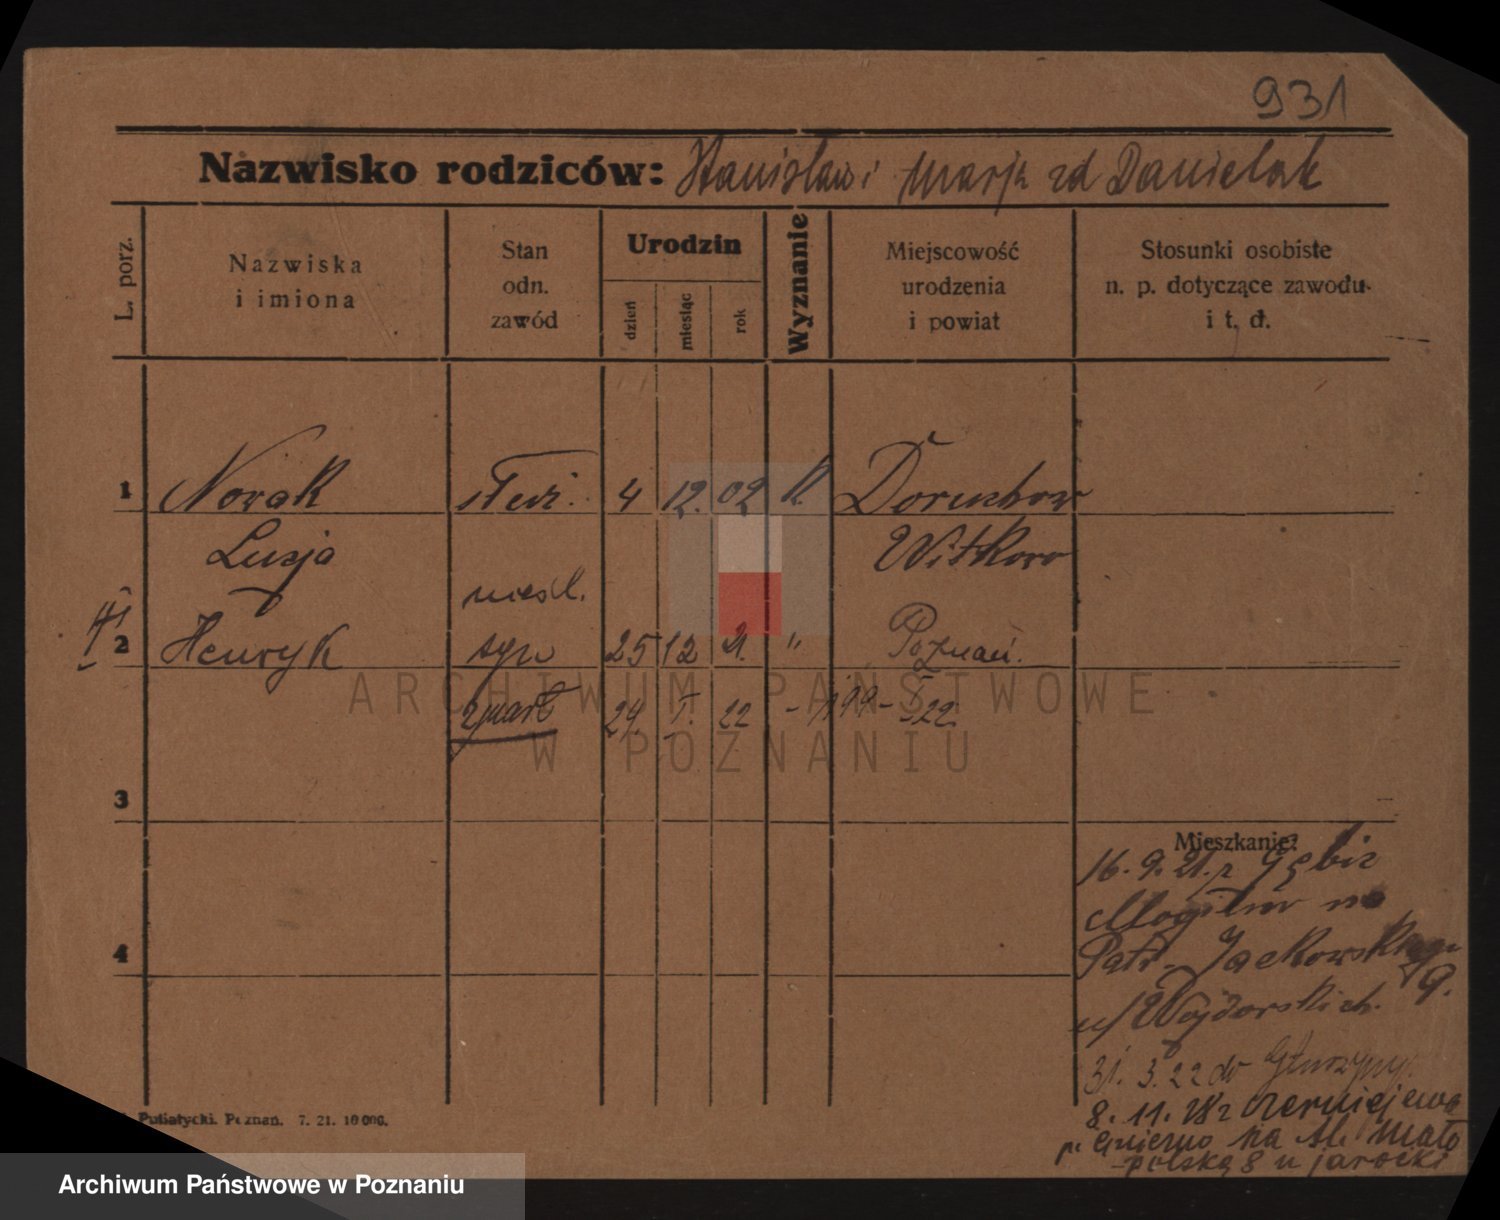 931
Nazwisko rodziców: Stanisław i Marja zd Danielak
L. porz.
Nazwiska
i imiona
Stan
odn.
zawód
Urodzin
dzień
miesiąc
rok
Wyznanie
Miejscowość
urodzenia
i powiat
Stosunki osobiste
n. p. dotyczące zawodu
i t. d.
1 Nowak służ. 4 12. 02 k. Doruchow
Lucja Witkowo
nieśl.
2 Henryk syn 25 12 21. " Poznań.
zmarł 24. I. 22 - 199- I 22
3
4
Mieszkanie:
16. 9. 21. z Gębic
Mogilno na
Patr. Jackowskiego
9.
u/ Wojdowskich.
31. 3. 22 do
8. 11. z Czerniejewa
p. Gniezno na Al. Mało
-polską 8 u Jarocki
Putiatycki. Poznań. 7. 21. 10 000.
ARCHIWUM PAŃSTWOWE
W POZNANIU
Archiwum Państwowe w Poznaniu